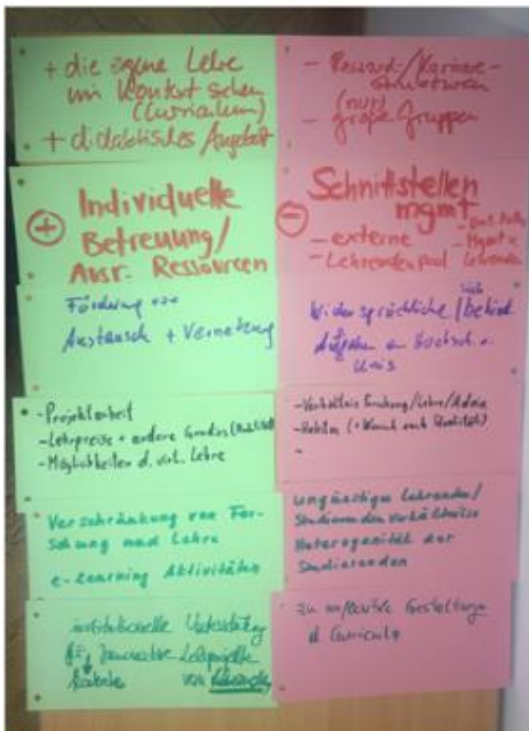 + die eigene Lehre
im Kontext sehen
(Curriculum)
+ didaktisches Angebot
+ Individuelle
Betreuung/
Ausr. Ressourcen
Förderung von
Austausch + Vernetzung
- Projektarbeit
- Lehrpreise + andere
- Möglichkeiten d. virt. Lehre
Verschränkung von For-
schung und Lehre
e-learning Aktivitäten
institutionelle Unterstützung
für innovative Lehrprojekte
von
- Reward-/Karriere-
strukturen
(nur)
- große Gruppen
- Schnittstellen
mgmt
- externe
- Lehrendenpool
- Mgmt
Lehrenden
Widersprüchliche
Aufgaben an
Unis
- Verhältnis Forschung/Lehre/Admin
- (+ Wunsch nach Qualität)
-
ungünstige Lehrenden/
Studierendenverhältnisse
Heterogenität der
Studierenden
zu
Gestaltung
d Curricula